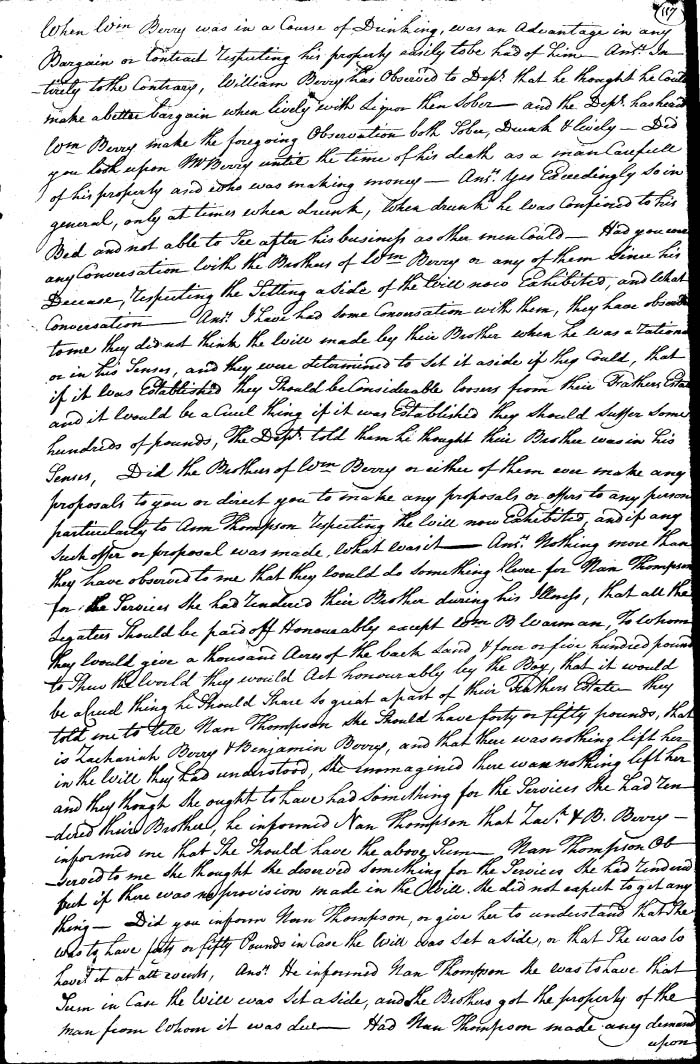 117
When Wm Berry was in a Course of Drinking, was an Advantage in any
Bargain or Contract respecting his property easily to be had of him — Ansr. In-
tirely to the Contrary, William Berry has Observed to Dept. that he thought he Could
make a better bargain when lively with Liquor then Sober — and the Dept. has heard
Wm Berry make the foregoing Observation both Sober, Drunk & lively — Did
you look upon Mr Berry until the time of his death as a man Carefull
of his property and who was making money — Ansr. Yes Exceedingly so in
general, only at times when drunk, When drunk he was Confined to his
Bed and not able to See after his business as other men Could — Had you ever
any Conversation with the Brothers of Wm Berry or any of them Since his
Decease, respecting the Setting aside of the Will now Exhibited, and What
Conversation — Ansr. I have had some Conversation with them, they have observed
to me they did not think the Will made by their Brother when he was a rational
or in his Senses, and they were determined to Set it aside if they Could, that
if it was Established they Should be Considerable loosers from their Fathers Estate
and it would be a Cruel thing if it was Established they should suffer Some
hundreds of pounds, The Dept. told them he thought their Brother was in his
Senses, Did the Brothers of Wm Berry or either of them ever make any
proposals to you or direct you to make any proposals or offers to any person
particularly to Ann Thompson respecting the Will now Exhibited, and if any
Such offer or proposal was made, What was it — Ansr. Nothing more than
they have observed to me that they would do something Clever for Nan Thompson
for the Services She had rendered their Brother during his Illness, that all the
Legatees Should be paid off Honourably except Wm B Warman, To Whom
they would give a thousand Acres of the back Land & four or five hundred pound
to Shew the World they would Act honourably by the Boy, that it would
be a Cruel thing he Should Share so great a part of their Fathers Estate they
told me to tell Nan Thompson she Should have forty or fifty pounds, that
is Zachariah Berry & Benjamin Berry, and that there was nothing left her
in the Will they had understood, she immagined there was nothing left her
and they though she ought to have had Something for the Services She had ren-
dered their Brother, he informed Nan Thompson that Zach. & B. Berry —
informed me that She Should have the above Sum — Nan Thompson Ob-
served to me She thought She deserved something for the Services She had rendered
but if there was no provision made in the Will She did not expect to get any
thing — Did you inform Nan Thompson, or give her to understand that She
was to have forty or fifty Pounds in Case the Will was Set aside, or that She was to
have it at all events, Ansr. He informed Nan Thompson She was to have that
Sum in Case the Will was Set aside, and the Brothers got the property of the
man from Whom it was due — Had Nan Thompson made any demand
upon